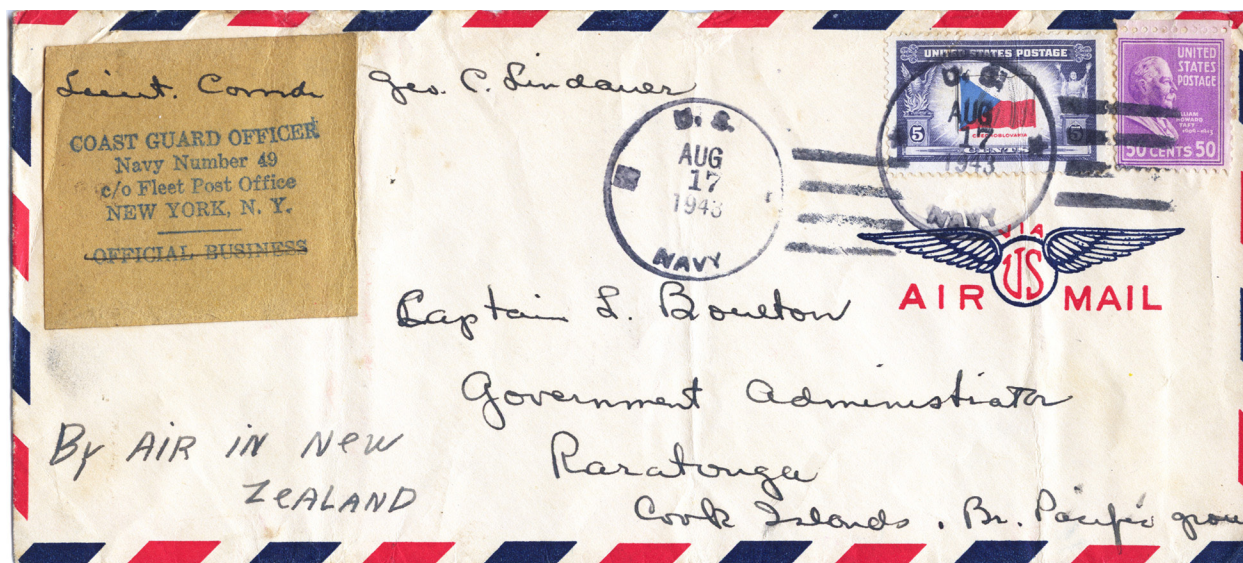 Lieut. Comdr Geo. C. Lindauer
COAST GUARD OFFICER
Navy Number 49
c/o Fleet Post Office
NEW YORK, N. Y.
OFFICIAL BUSINESS
U. S.
AUG
17
1943
NAVY
U. S.
AUG
17
1943
NAVY
UNITED STATES POSTAGE
CZECHOSLOVAKIA
5 5
CENTS
UNITED
STATES
POSTAGE
WILLIAM
HOWARD
TAFT
50 CENTS 50
VIA
US
AIR MAIL
Captain L. Boulton
Government Administrator
Raratonga
Cook Islands, Br. Pacific grou
By AIR IN NEW
ZEALAND